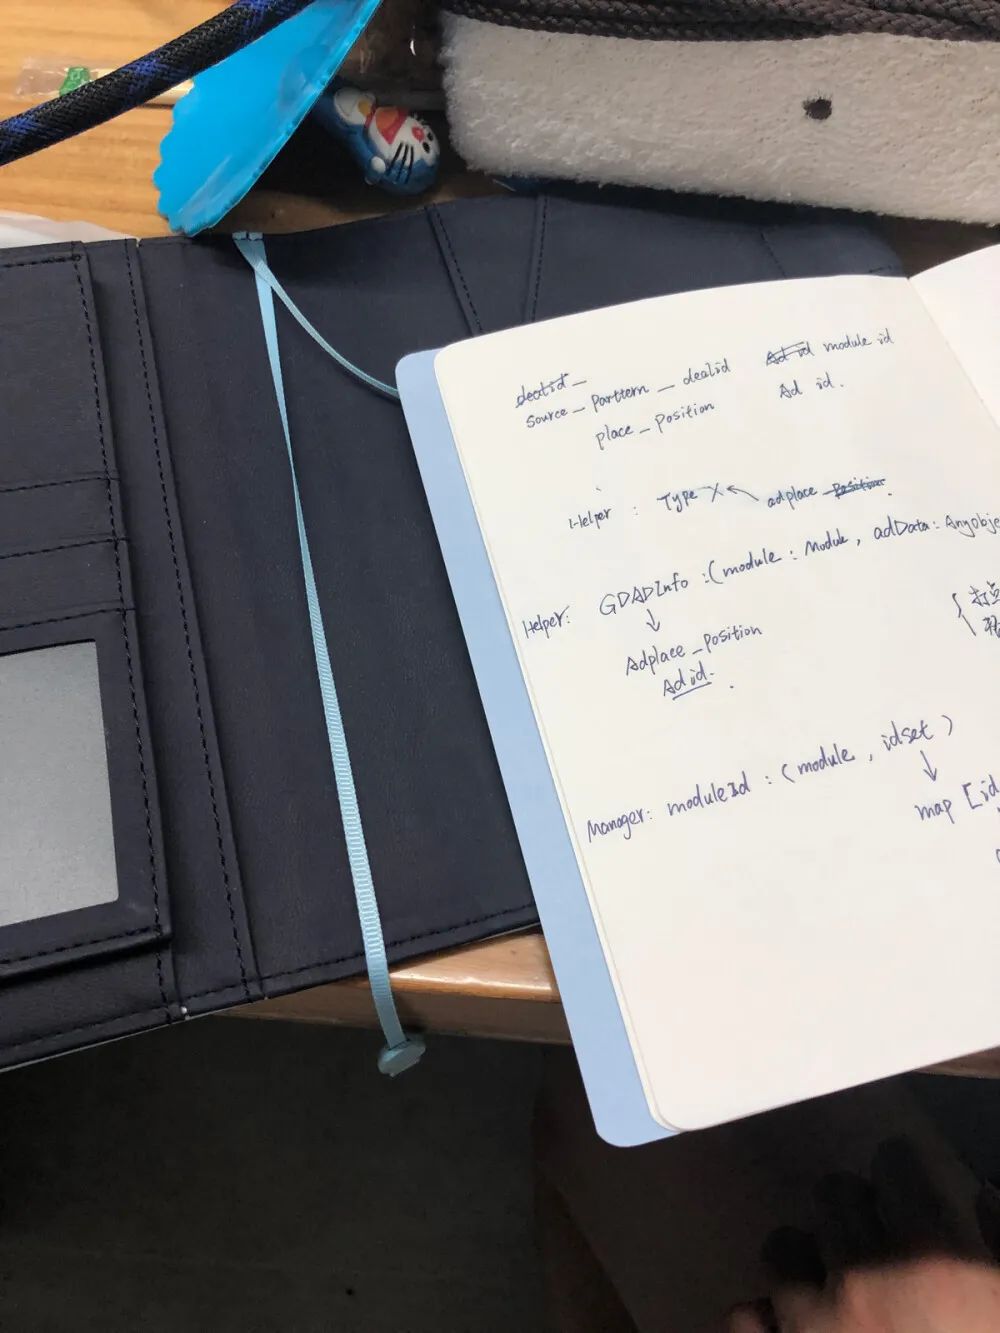 dealid_
source_parttern_dealid
place_position
Ad id module id
Ad id.
Helper : Type X ← adplace_position.
Helper: GDADInfo :(module : Module, adData: Anyobje
↓
Adplace_position
Ad id.
Manager: moduleId : (module, idset)
↓
map [id,